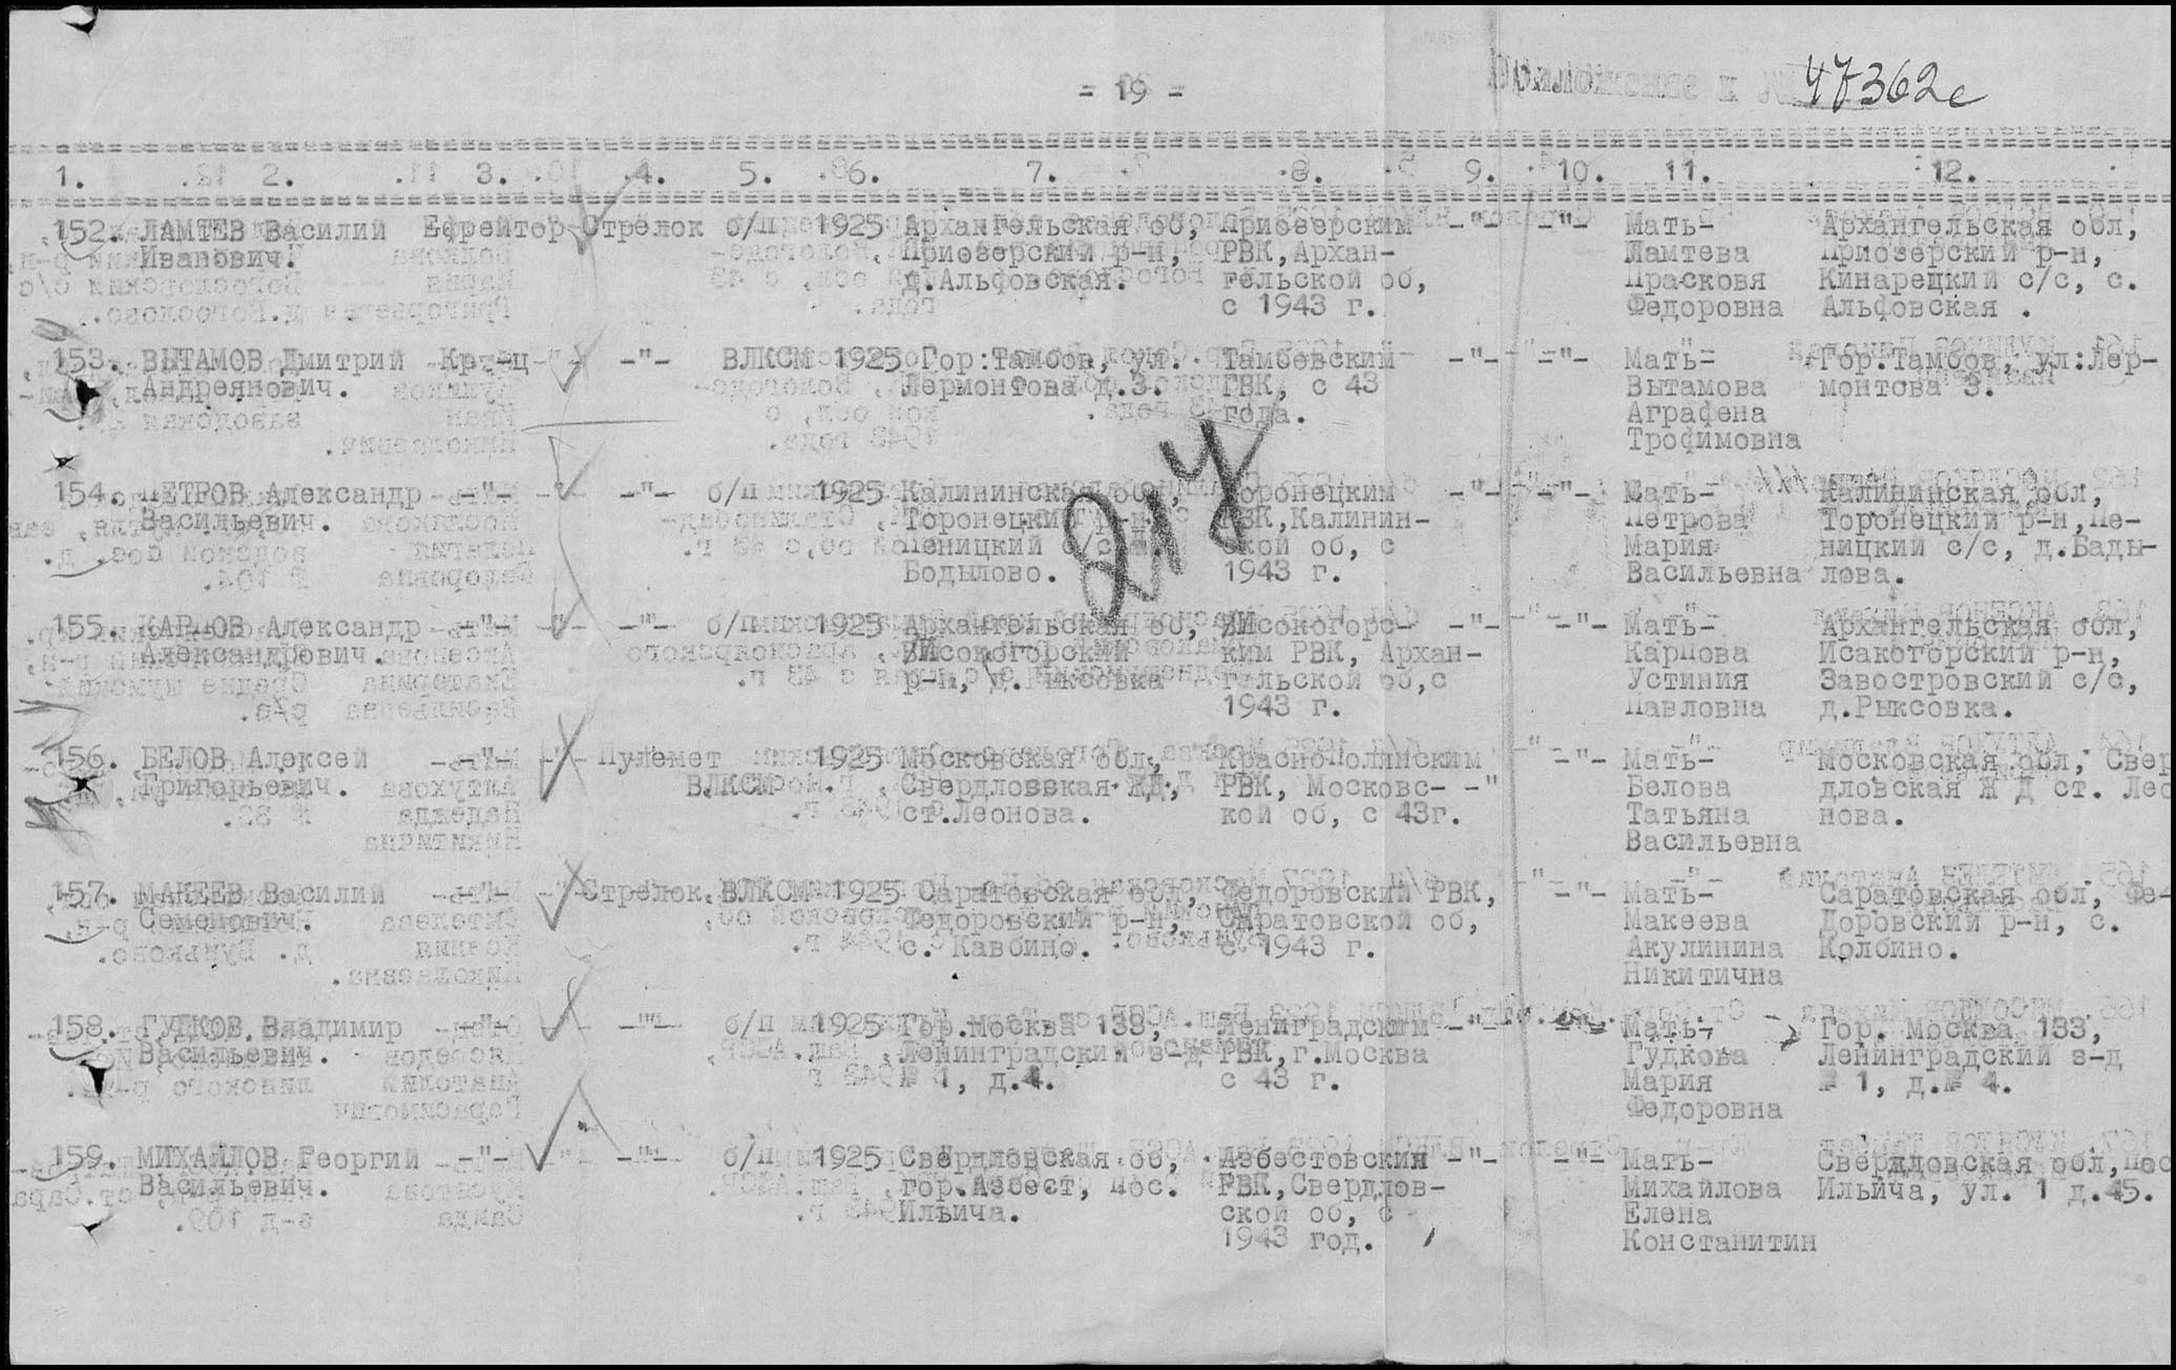 = 19 =
47362с
1. 2. 3. 4. 5. 6. 7. 8. 9. 10. 11. 12.
152. ЛАМТЕВ Василий Ефрейтор Стрелок б/п 1925 Архангельская об, Приозерским -"- -"- Мать- Архангельская обл,
Иванович. Приозерский р-н, РВК, Архан- Ламтева Приозерский р-н,
д.Альфовская. гельской об, Прасковя Кинарецкий с/с, с.
с 1943 г. Федоровна Альфовская .
153. ВЫТАМОВ Дмитрий Кр-ц -"- -"- ВЛКСМ 1925 Гор:Тамбов, ул. Тамбовский -"- -"- Мать- Гор.Тамбов, ул:Лер-
Андреянович. Лермонтова д.3. ГВК, с 43 Вытамова монтова 3.
года. Аграфена
Трофимовна
217
154. ПЕТРОВ Александр -"- -"- -"- б/п 1925 Калининская обл, Торонецким -"- -"- Мать- Калининская обл,
Васильевич. Торонецкий р-н, РВК,Калинин- Петрова Торонецкий р-н,Пе-
Пеницкий с/с д. ской об, с Мария ницкий с/с, д.Бады-
Бодылово. 1943 г. Васильевна лова.
155. КАРПОВ Александр -"- -"- -"- б/п 1925 Архангельская об, Исокогорс- -"- -"- Мать- Архангельская обл,
Александрович. Исокогорский ким РВК, Архан- Карпова Исакогорский р-н,
р-н, д.Рыксовка гельской об,с Устиния Завостровский с/с,
1943 г. Павловна д.Рыксовка.
156. БЕЛОВ Алексей -"- -"- Пулемет 1925 Московская обл, Краснополянским -"- -"- Мать- Московская обл, Свер
Григорьевич. ВЛКСМ Свердловская ЖД, РВК, Московс- -" Белова дловская Ж Д ст. Лео
ст.Леонова. кой об, с 43г. Татьяна нова.
Васильевна
157. МАКЕЕВ Василий -"- -"- Стрелок ВЛКСМ 1925 Саратовская обл, Федоровский РВК, -"- -"- Мать- Саратовская обл, Фе-
Семенович. Федоровский р-н, Саратовской об, Макеева Доровский р-н, с.
с. Кавбино. с 1943 г. Акулинина Колбино.
Никитична
158. ГУДКОВ Владимир -"- -"- -"- б/п 1925 Гор.Москва 133, Лениградским -"- -"- Мать- Гор. Москва 133,
Васильевич. Ленинградский з-д РВК,г.Москва Гудкова Ленинградский з-д
№ 1, д.4. с 43 г. Мария № 1, д.№ 4.
Федоровна
159. МИХАЙЛОВ Георгий -"- -"- -"- б/п 1925 Свердловская об, Азбестовский -"- -"- Мать- Свердловская обл,пос
Васильевич. гор.Азбест, пос. РВК,Свердлов- Михайлова Ильича, ул. 1 д.45.
Ильича. ской об, с Елена
1943 год. Констанитин